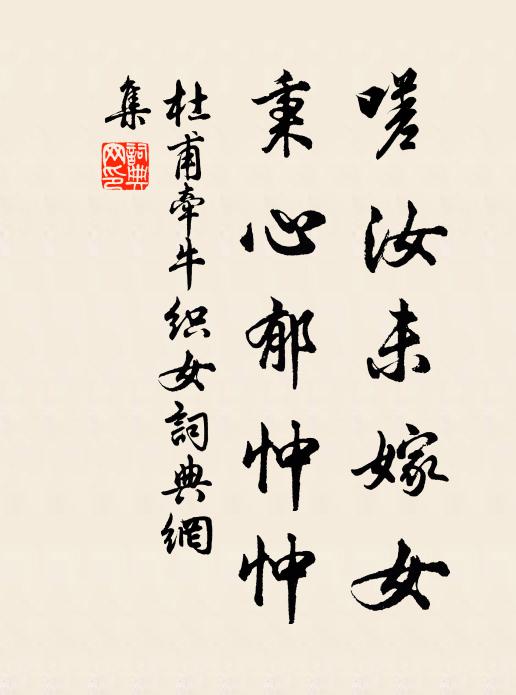 嗟汝未嫁女
秉心郁忡忡
杜甫牽牛织女詞典網
集
詞典
网印